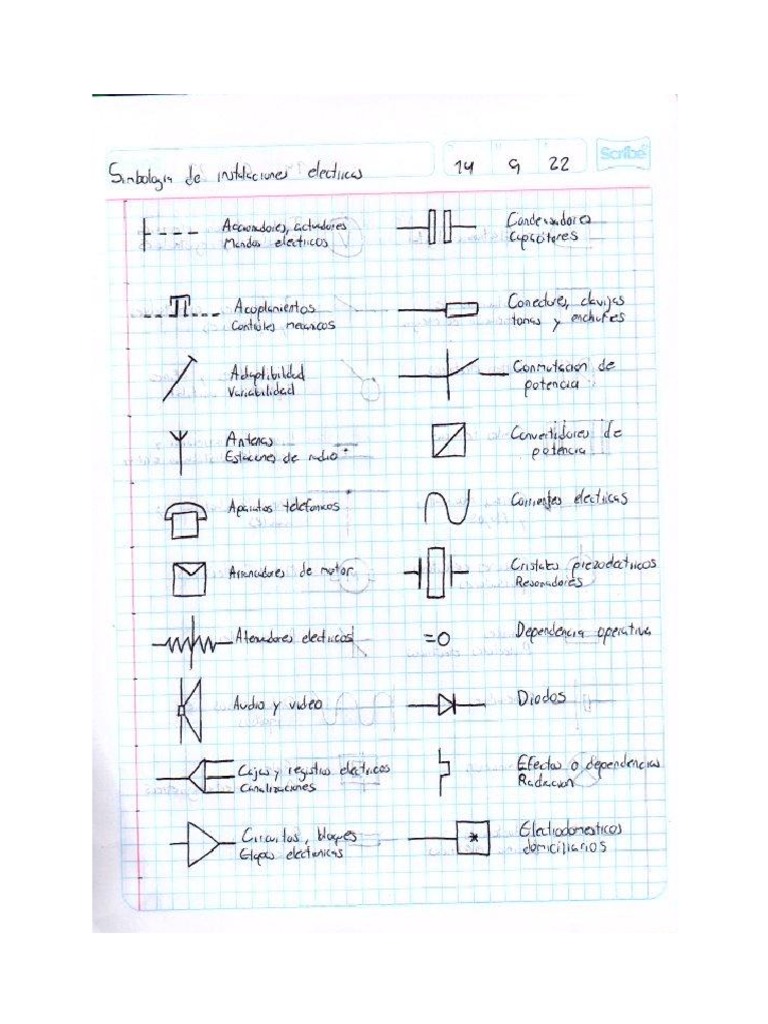 Simbologia de instalaciones electricas
14 9 22
Scribe
Accionadores, actuadores
Mandos electricos
Condensadores
Capacitores
Acoplamientos
Controles mecanicos
Conectores, clavijas
tomas y enchufes
Adaptibilidad
Variabilidad
Conmutacion de
potencia
Antenas
Estaciones de radio
Convertidores de
potencia
Aparatos telefonicos
Corrientes electricas
Arrancadores de motor
Cristales piezoelectricos
Resonadores
Atenuadores electricos
=0
Dependencia operativa
Audio y video
Diodos
Cajas y registros electricos
Canalizaciones
Efectos o dependencias
Radiacion
Circuitos, bloques
Etapas electronicas
Electrodomesticos
domiciliarios